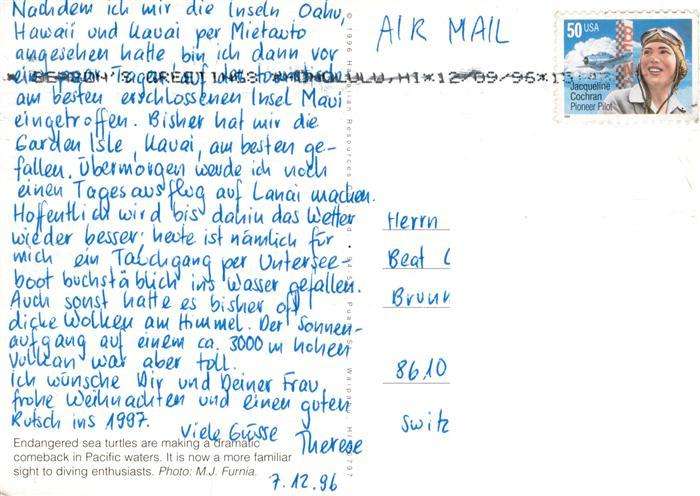 Nachdem ich mir die Inseln Oahu,
Hawaii und Kauai per Mietauto
angesehen hatte bin ich dann vor
am besten erschlossenen Insel Maui
eingetroffen. Bisher hat mir die
Garden Isle, Kauai, am besten ge-
fallen. Übermorgen werde ich noch
einen Tagesausflug auf Lanai machen.
Hoffentlich wird bis dahin das Wetter
wieder besser; heute ist nämlich für
mich ein Tauchgang per Untersee-
boot buchstäblich ins Wasser gefallen.
Auch sonst hatte es bisher oft
dicke Wolken am Himmel. Der Sonnen-
aufgang auf einem ca. 3000 m hohen
Vulkan war aber toll.
Ich wünsche Dir und Deiner Frau
frohe Weihnachten und einen guten
Rutsch ins 1997.
Viele Grüsse Therese
7.12.96
Endangered sea turtles are making a dramatic
comeback in Pacific waters. It is now a more familiar
sight to diving enthusiasts. Photo: M.J. Furnia.
© 1996 Resources
SEASON'S GREETINGS HONOLULU, HI*12/09/96*
AIR MAIL
50 USA
Jacqueline
Cochran
Pioneer Pilot
Herrn
Beat
Brunn
8610
Switz